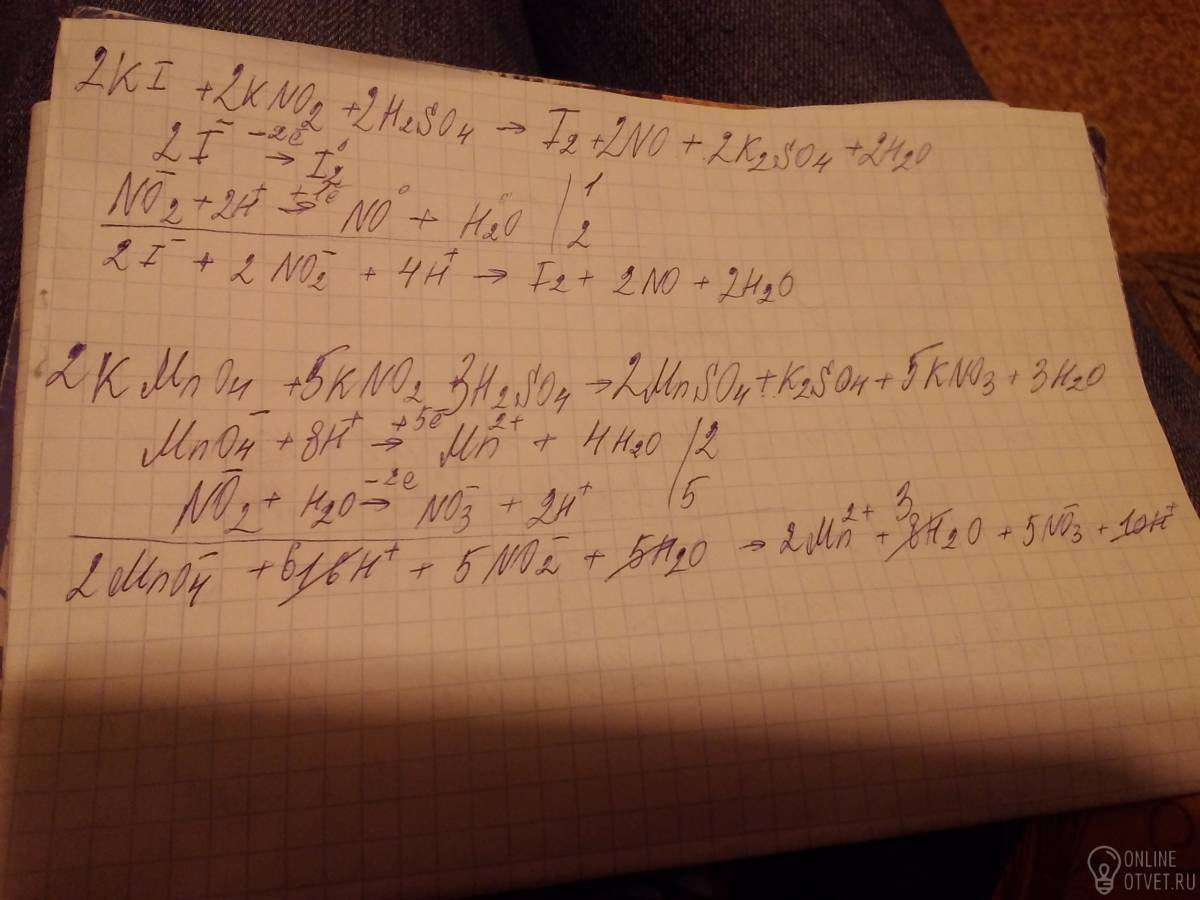 2KI + 2KNO₂ + 2H₂SO₄ → I₂ + 2NO + 2K₂SO₄ + 2H₂O
2I⁻ -2ē → I₂⁰
NO₂⁻ + 2H⁺ +1ē → NO⁰ + H₂O⁰ | 1
2
2I⁻ + 2NO₂⁻ + 4H⁺ → I₂ + 2NO + 2H₂O
2KMnO₄ + 5KNO₂ 3H₂SO₄ → 2MnSO₄ + K₂SO₄ + 5KNO₃ + 3H₂O
MnO₄⁻ + 8H⁺ +5ē → Mn²⁺ + 4H₂O | 2
NO₂⁻ + H₂O -2ē → NO₃⁻ + 2H⁺ | 5
2MnO₄⁻ + 6 16H⁺ + 5NO₂⁻ + 5H₂O → 2Mn²⁺ + 3 8H₂O + 5NO₃⁻ + 10H⁺
ONLINE
OTVET.RU